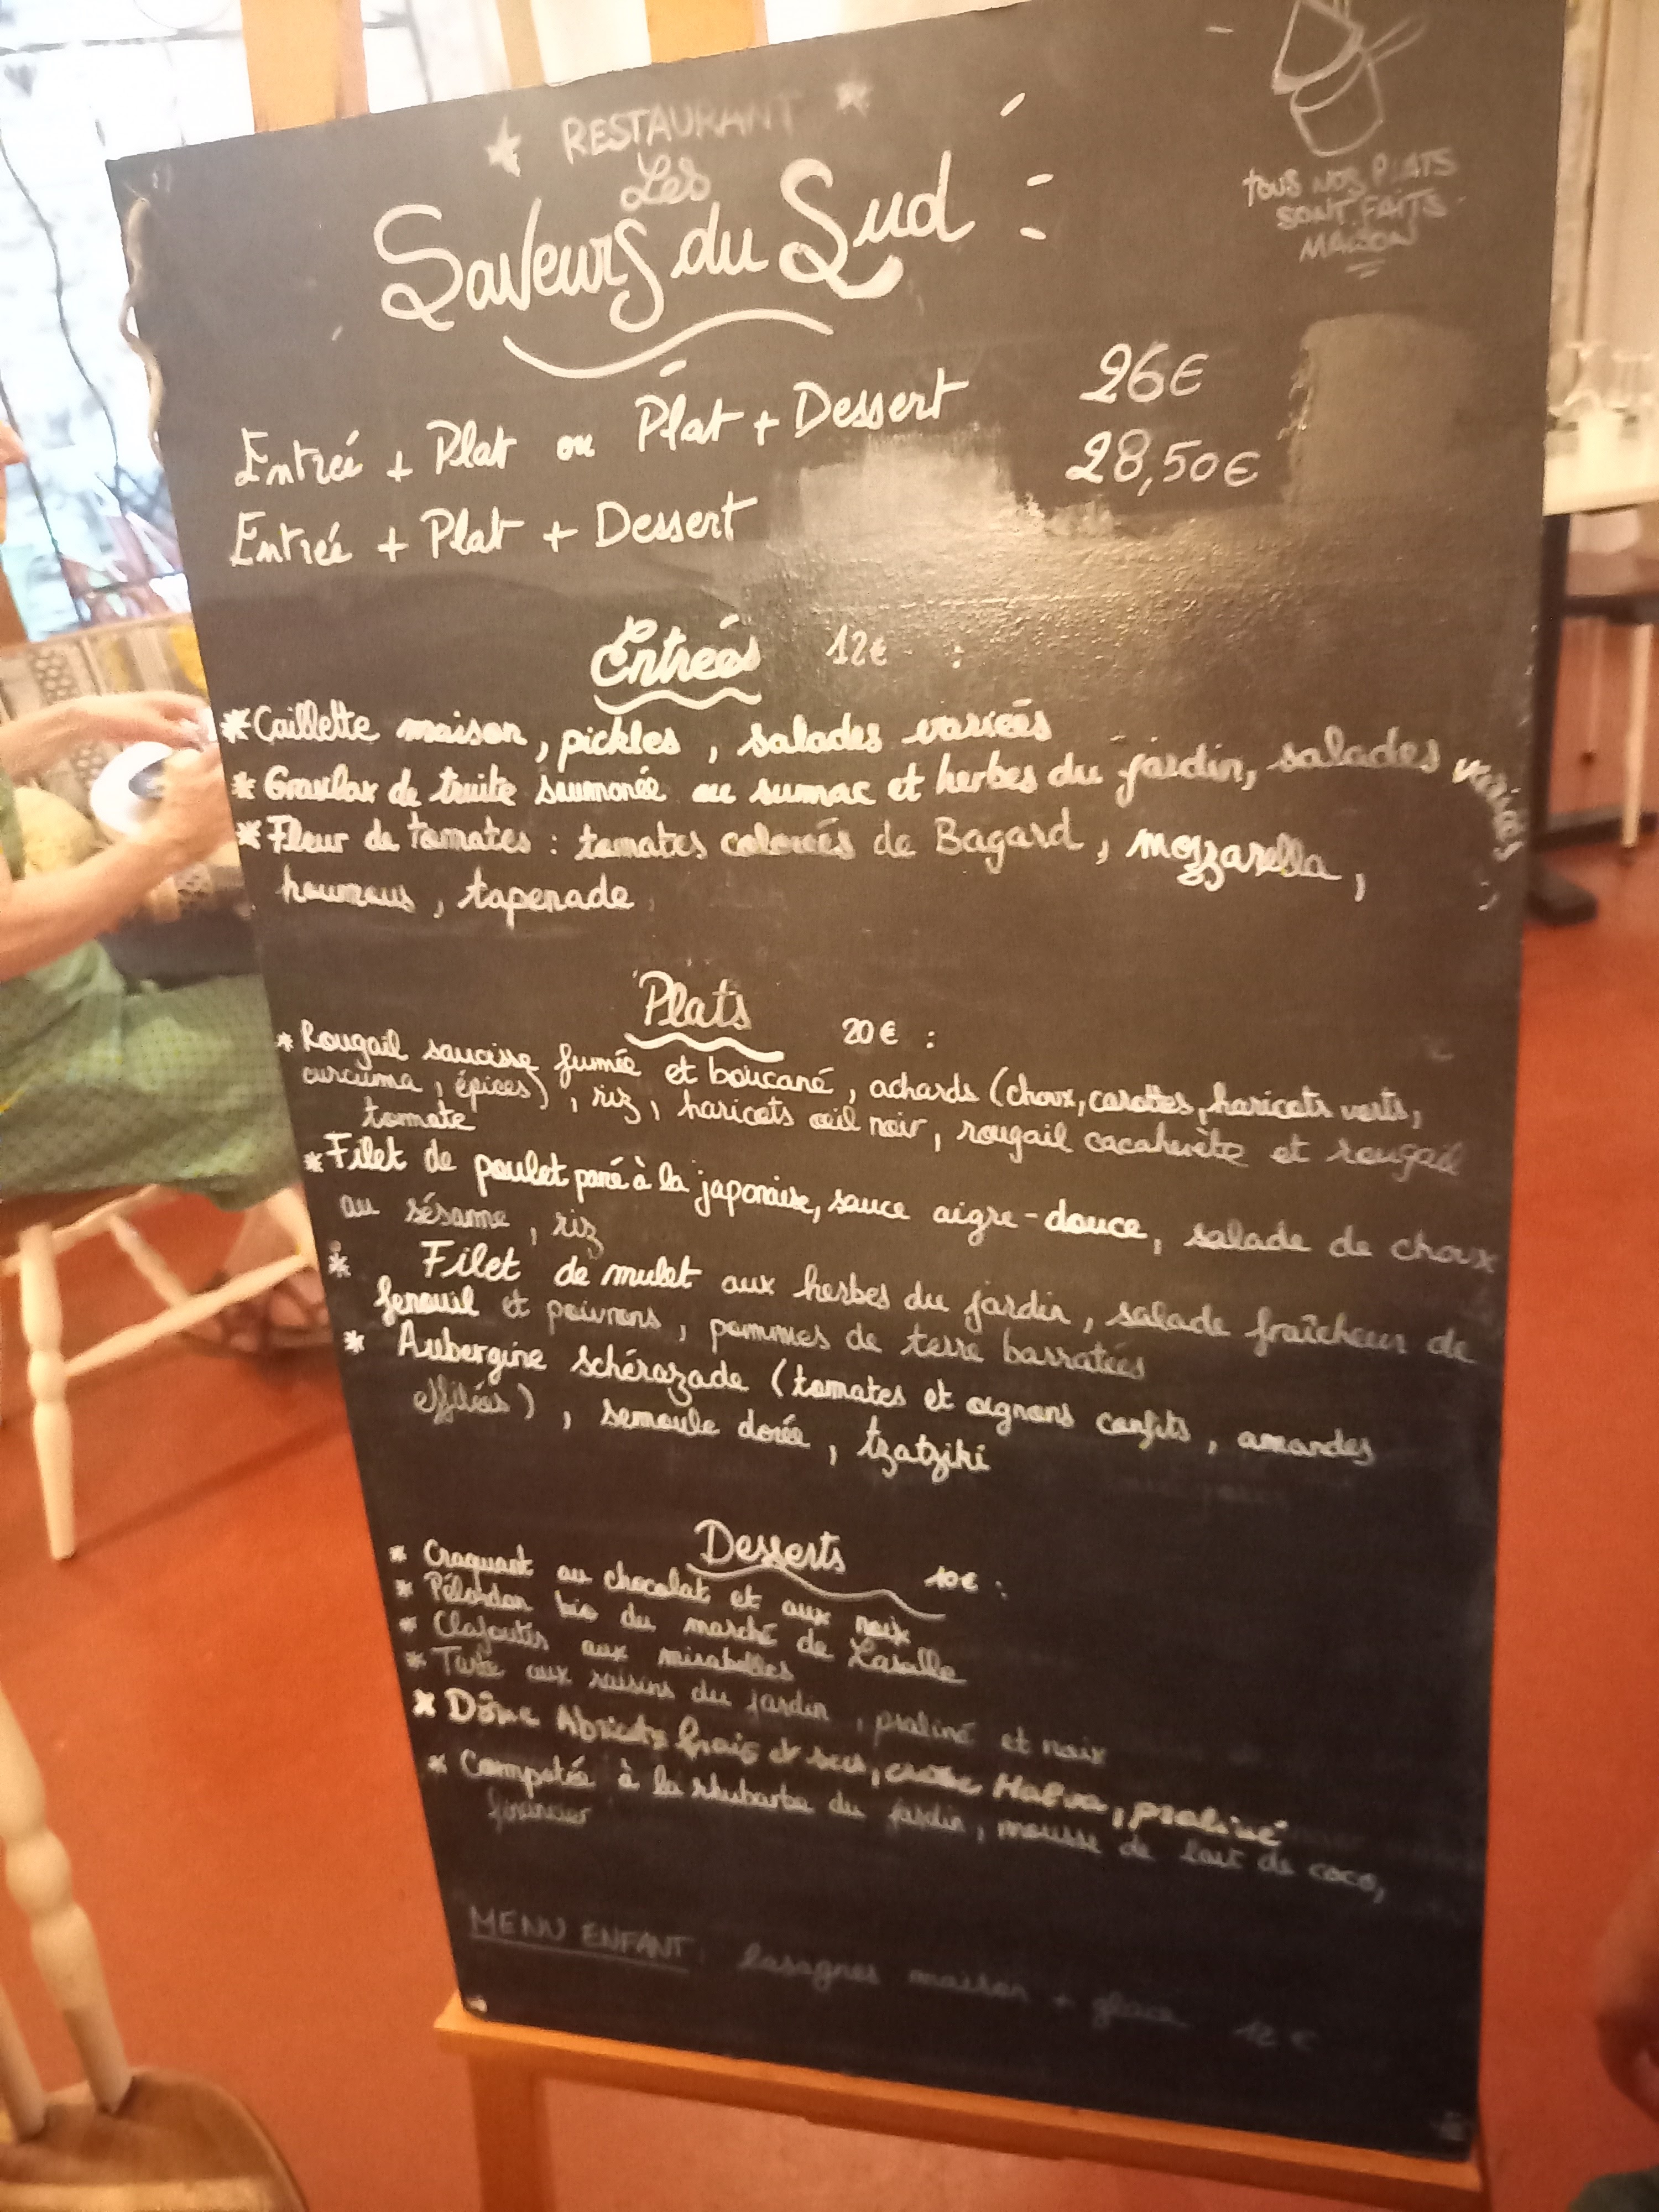 RESTAURANT
Les
Saveurs du Sud :
TOUS NOS PLATS
SONT FAITS
MAISON
Entrée + Plat ou Plat + Dessert 26€
Entrée + Plat + Dessert 28,50€
Entrées 12€ :
* Caillette maison, pickles, salades variées
* Gravlax de truite saumonée au sumac et herbes du jardin, salades variées
* Fleur de tomates : tomates colorées de Bagard, mozzarella,
houmous, tapenade
Plats 20€ :
* Rougail saucisse fumée et boucané, achards (choux, carottes, haricots verts,
curcuma, épices), riz, haricots œil noir, rougail cacahuète et rougail
tomate
* Filet de poulet pané à la japonaise, sauce aigre-douce, salade de choux
au sésame, riz
* Filet de mulet aux herbes du jardin, salade fraîcheur de
fenouil et poivrons, pommes de terre
* Aubergine schérazade (tomates et oignons confits, amandes
effilées), semoule dorée, tzatziki
Desserts 10€ :
* Craquant au chocolat et aux noix
* Pélardon bio du marché de Lasalle
* Clafoutis aux mirabelles
* Tarte aux raisins du jardin, praliné et noix
* Dôme Abricots frais et secs, crème Halva, praliné
* Compotée à la rhubarbe du jardin, mousse de lait de coco,
financier
MENU ENFANT : lasagnes maison + glace 12 €